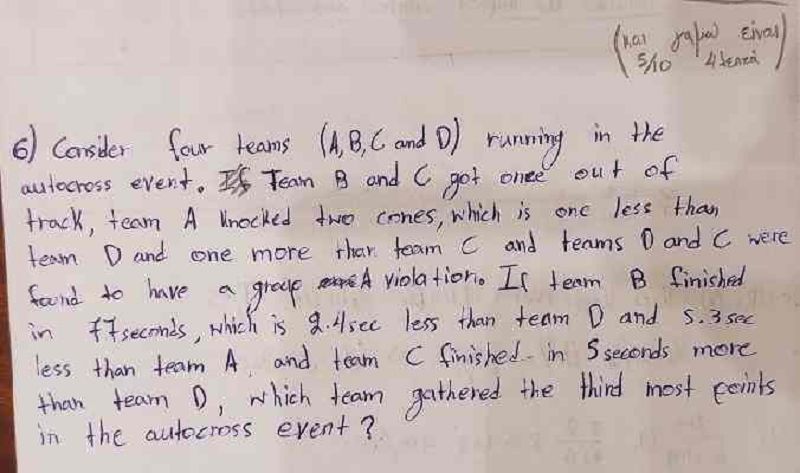 (και γαμω είναι)
5/10 4 τελικά
6) Consider four teams (A, B, C and D) running in the
autocross event. If Team B and C got once out of
track, team A knocked two cones, which is one less than
team D and one more than team C and teams D and C were
found to have a group A violation. If team B finished
in 77 seconds, which is 2.4 sec less than team D and 5.3 sec
less than team A, and team C finished in 5 seconds more
than team D, which team gathered the third most points
in the autocross event?